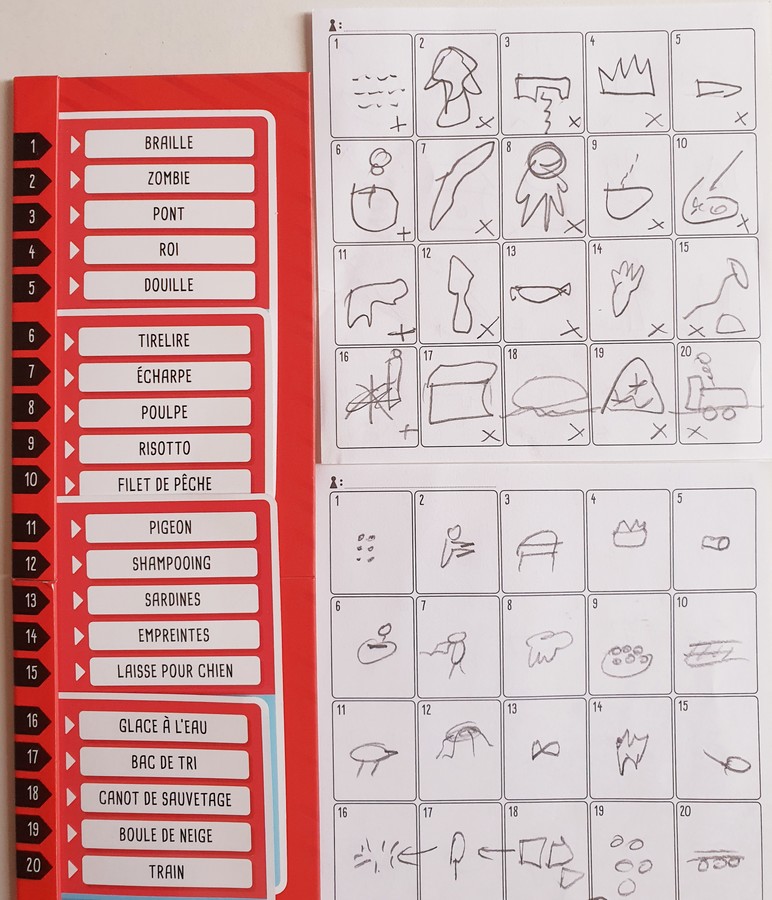 1 BRAILLE
2 ZOMBIE
3 PONT
4 ROI
5 DOUILLE
6 TIRELIRE
7 ÉCHARPE
8 POULPE
9 RISOTTO
10 FILET DE PÊCHE
11 PIGEON
12 SHAMPOOING
13 SARDINES
14 EMPREINTES
15 LAISSE POUR CHIEN
16 GLACE À L'EAU
17 BAC DE TRI
18 CANOT DE SAUVETAGE
19 BOULE DE NEIGE
20 TRAIN
:
1 2 3 4 5
6 7 8 9 10
11 12 13 14 15
16 17 18 19 20
:
1 2 3 4 5
6 7 8 9 10
11 12 13 14 15
16 17 18 19 20